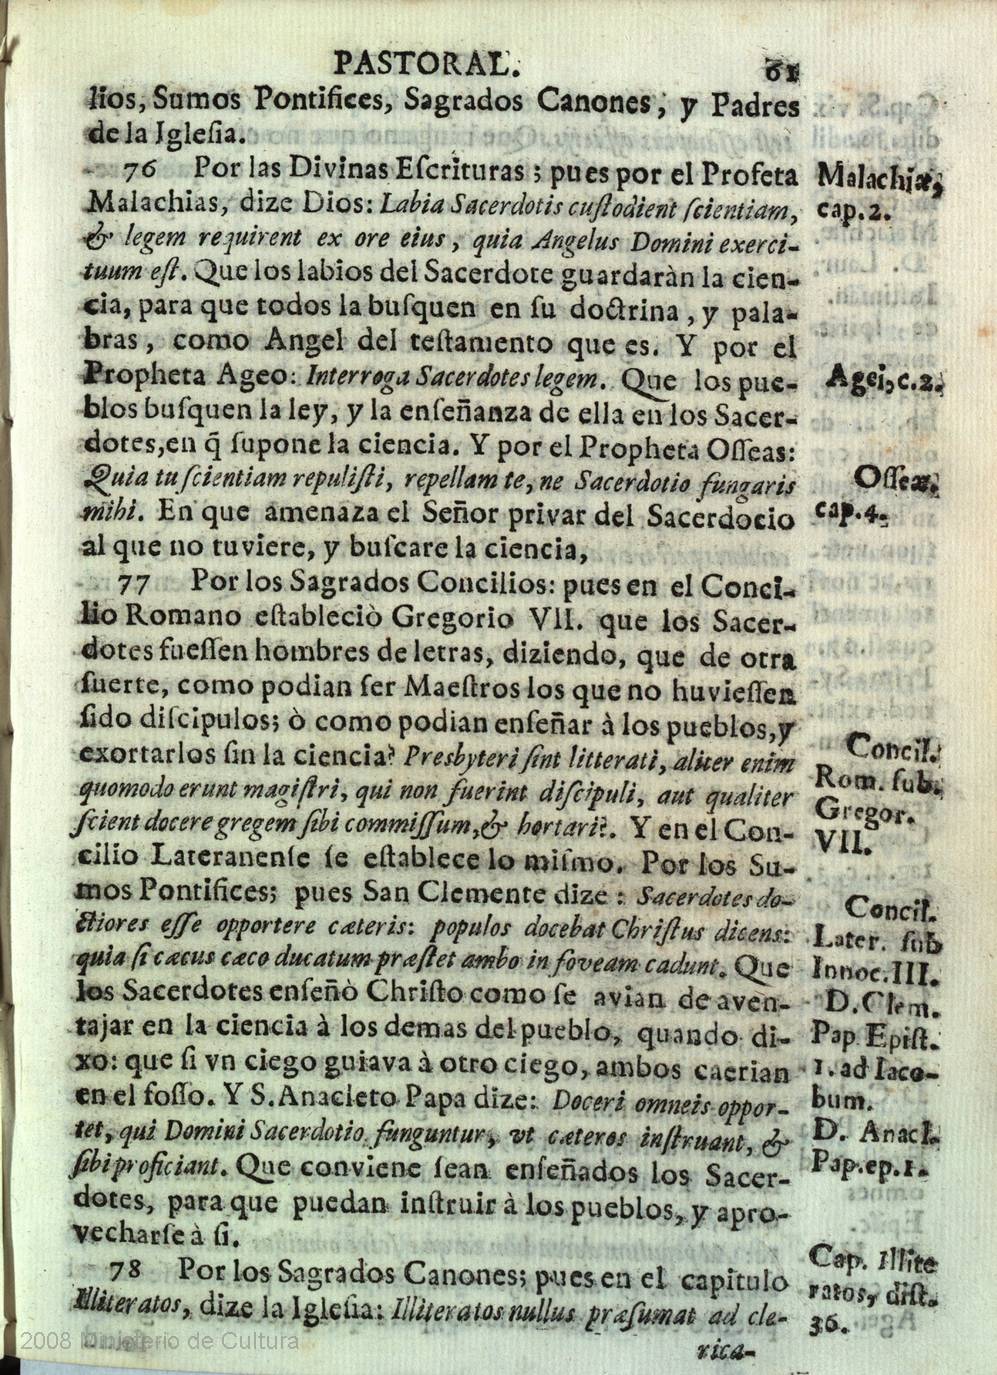 PASTORAL. 61
lios, Sumos Pontifices, Sagrados Canones, y Padres
de la Igleſia.
76 Por las Divinas Eſcrituras ; pues por el Profeta
Malachias, dize Dios: Labia Sacerdotis cuſtodient ſcientiam,
& legem requirent ex ore eius, quia Angelus Domini exerci-
tuum eſt. Que los labios del Sacerdote guardaràn la cien-
cia, para que todos la buſquen en ſu doctrina, y pala-
bras, como Angel del teſtamento que es. Y por el
Propheta Ageo: Interroga Sacerdotes legem. Que los pue-
blos buſquen la ley, y la enſeñanza de ella en los Sacer-
dotes, en q̃ ſupone la ciencia. Y por el Propheta Oſſeas:
Quia tu ſcientiam repuliſti, repellam te, ne Sacerdotio fungaris
mihi. En que amenaza el Señor privar del Sacerdocio
al que no tuviere, y buſcare la ciencia,
77 Por los Sagrados Concilios: pues en el Conci-
lio Romano eſtableciò Gregorio VII. que los Sacer-
dotes fueſſen hombres de letras, diziendo, que de otra
ſuerte, como podian ſer Maeſtros los que no huvieſſen
ſido diſcipulos; ò como podian enſeñar à los pueblos, y
exortarlos ſin la ciencia? Presbyteri ſint litterati, aliter enim
quomodo erunt magiſtri, qui non fuerint diſcipuli, aut qualiter
ſcient docere gregem ſibi commiſſum, & hortari?. Y en el Con-
cilio Lateranenſe ſe eſtablece lo miſmo. Por los Su-
mos Pontifices; pues San Clemente dize : Sacerdotes do-
ctiores eſſe opportere cæteris: populos docebat Chriſtus dicens:
quia ſi cæcus cæco ducatum præſtet ambo in foveam cadunt. Que
los Sacerdotes enſeñò Chriſto como ſe avian de aven-
tajar en la ciencia à los demas del pueblo, quando di-
xo: que ſi vn ciego guiava à otro ciego, ambos caerian
en el foſſo. Y S. Anacleto Papa dize: Doceri omneis oppor-
tet, qui Domini Sacerdotio funguntur, vt cæteros inſtruant, &
ſibi proficiant. Que conviene ſean enſeñados los Sacer-
dotes, para que puedan inſtruir à los pueblos, y apro-
vecharſe à ſi.
78 Por los Sagrados Canones; pues en el capitulo
Illiteratos, dize la Igleſia: Illiteratos nullus præſumat ad cle-
rica-
Malachiæ,
cap.2.
Agei, c.2.
Oſſeæ,
cap.4.
Concil.
Rom. ſub.
Gregor.
VII.
Concil.
Later. ſub
Innoc.III.
D.Clem.
Pap Epiſt.
1. ad Iaco-
bum.
D. Anacl.
Pap.ep.1.
Cap. Illite
ratos, diſt.
36.
2008 Ministerio de Cultura